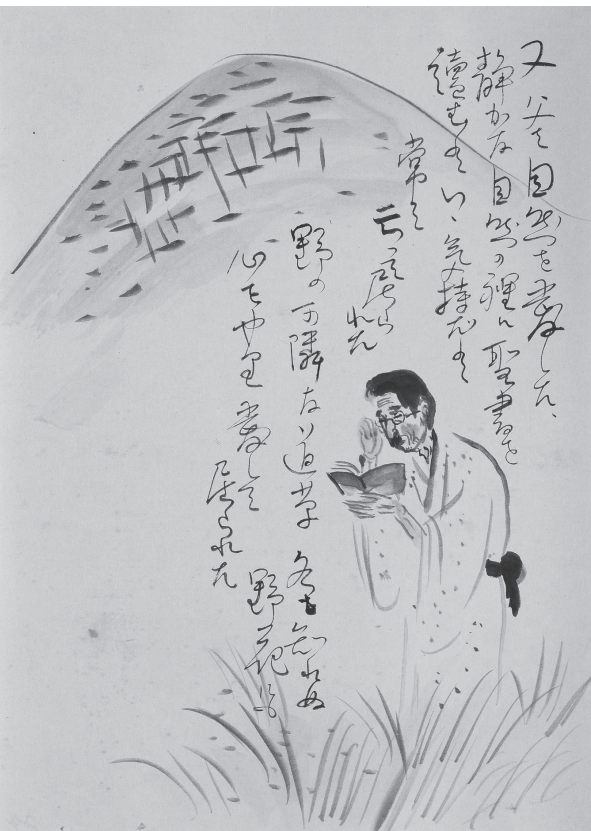 又父は自然を愛した、
静かな自然の裡に聖書を
讀むはいゝ気持だと
常に
云って居られた
野の可隣な道草 名も知れぬ
野花にも
心をやり 愛して
居られた